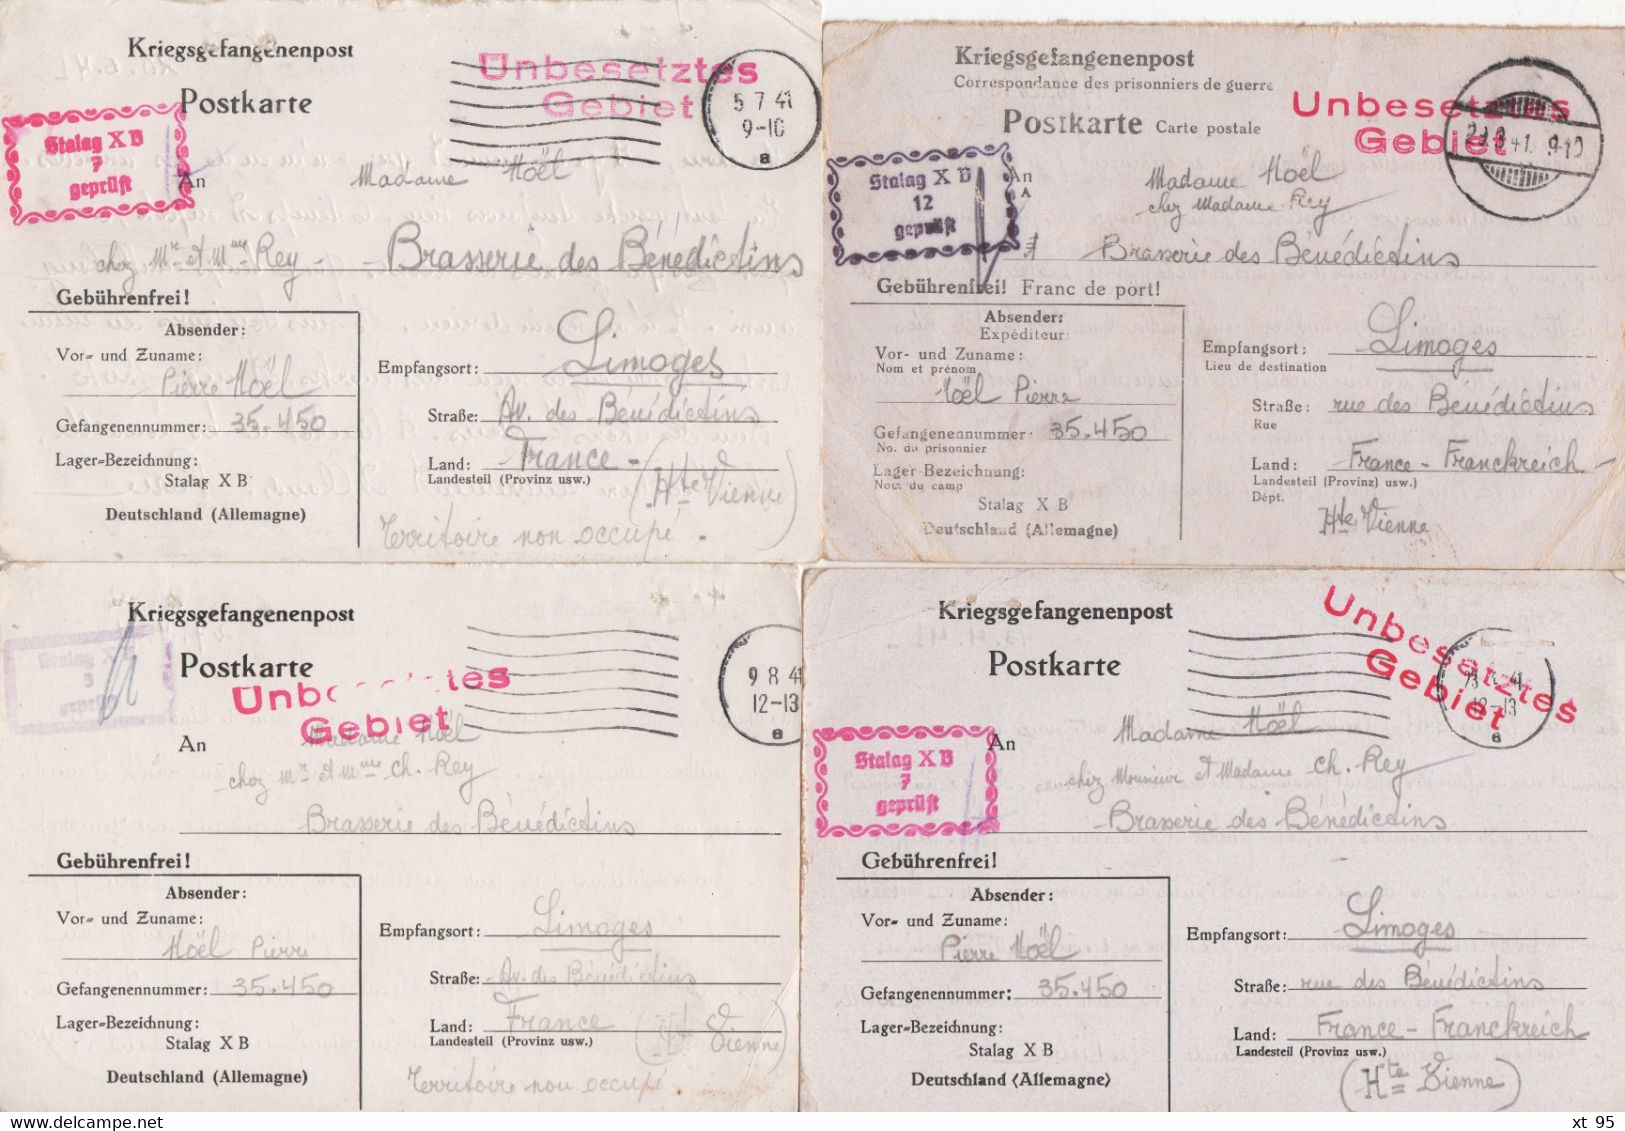 Kriegsgefangenenpost
Unbesetztes
Gebiet
5 7 41
9-10
a
Postkarte
Stalag X B
7
geprüft
An
Madame Noël
chez Mr et Mme Rey - Brasserie des Bénédictins
Gebührenfrei!
Absender:
Vor- und Zuname:
Pierre Noël
Gefangenennummer: 35.450
Lager-Bezeichnung:
Stalag X B
Deutschland (Allemagne)
Empfangsort: Limoges
Straße: Av. des Bénédictins
Land: France - (Hte Vienne)
Landesteil (Provinz usw.)
Territoire non occupé.
Kriegsgefangenenpost
Correspondance des prisonniers de guerre
Unbesetztes
Gebiet
41. 9-10
Postkarte Carte postale
Stalag X B
12
geprüft
An
A
Madame Noël
chez Madame Rey
Brasserie des Bénédictins
Gebührenfrei! Franc de port!
Absender:
Expéditeur:
Vor- und Zuname:
Nom et prénom
Noël Pierre
Gefangenennummer: 35.450
No. du prisonnier
Lager-Bezeichnung:
Nom du camp
Stalag X B
Deutschland (Allemagne)
Empfangsort: Limoges
Lieu de destination
Straße: rue des Bénédictins
Rue
Land: France - Franckreich
Landesteil (Provinz usw.)
Dépt.
Hte Vienne
Kriegsgefangenenpost
Postkarte
9 8 41
12-13
a
Unbesetztes
Gebiet
Stalag X B
5
geprüft
An
Madame Noël
chez Mr et Mme Ch. Rey
Brasserie des Bénédictins
Gebührenfrei!
Absender:
Vor- und Zuname:
Noël Pierre
Gefangenennummer: 35.450
Lager-Bezeichnung:
Stalag X B
Deutschland (Allemagne)
Empfangsort: Limoges
Straße: Av. des Bénédictins
Land: France (Hte Vienne)
Landesteil (Provinz usw.)
Territoire non occupé.
Kriegsgefangenenpost
Postkarte
Unbesetztes
Gebiet
41
12-13
a
Stalag X B
7
geprüft
An
Madame Noël
chez Monsieur et Madame Ch. Rey
Brasserie des Bénédictins
Gebührenfrei!
Absender:
Vor- und Zuname:
Pierre Noël
Gefangenennummer: 35.450
Lager-Bezeichnung:
Stalag X B
Deutschland (Allemagne)
Empfangsort: Limoges
Straße: rue des Bénédictins
Land: France - Franckreich
Landesteil (Provinz usw.)
(Hte Vienne)
www.delcampe.net
xt 95